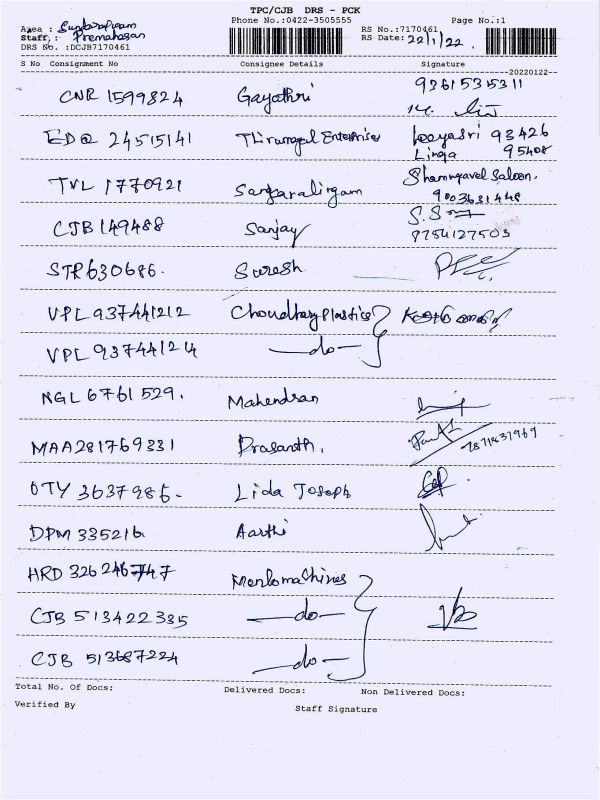 TPC/CJB DRS - PCK
Phone No.:0422-3505555 Page No.:1
Area : Sundarapuram RS No.:7170461
Staff,: Premahasan RS Date: 22/1/22.
DRS No. :DCJB7170461
S No Consignment No Consignee Details Signature
--20220122--
CNR 1599824 Gayathri 93615315311
EDQ 24515141 Thirumgal Enterprise Jeeyasri 93426
Linga 95408
TVL 1770921 Sangaralingam Shanmugavel Saloon.
9003631448
CJB 149488 Sanjay S.S
9754127503
STR630686. Suresh
VPL 937441212 Choudhary Plastics
VPL 937441214 —do—
NGL 6761 529. Mahendran
MAA281769331 Prasanth. 7871437969
OTY 3637985. Lida Joseph
DPM 335216 Aarthi
HRD 326246747 Menlomachines
CJB 513422335 —do—
CJB 513687224 —do—
Total No. Of Docs: Delivered Docs: Non Delivered Docs:
Verified By Staff Signature